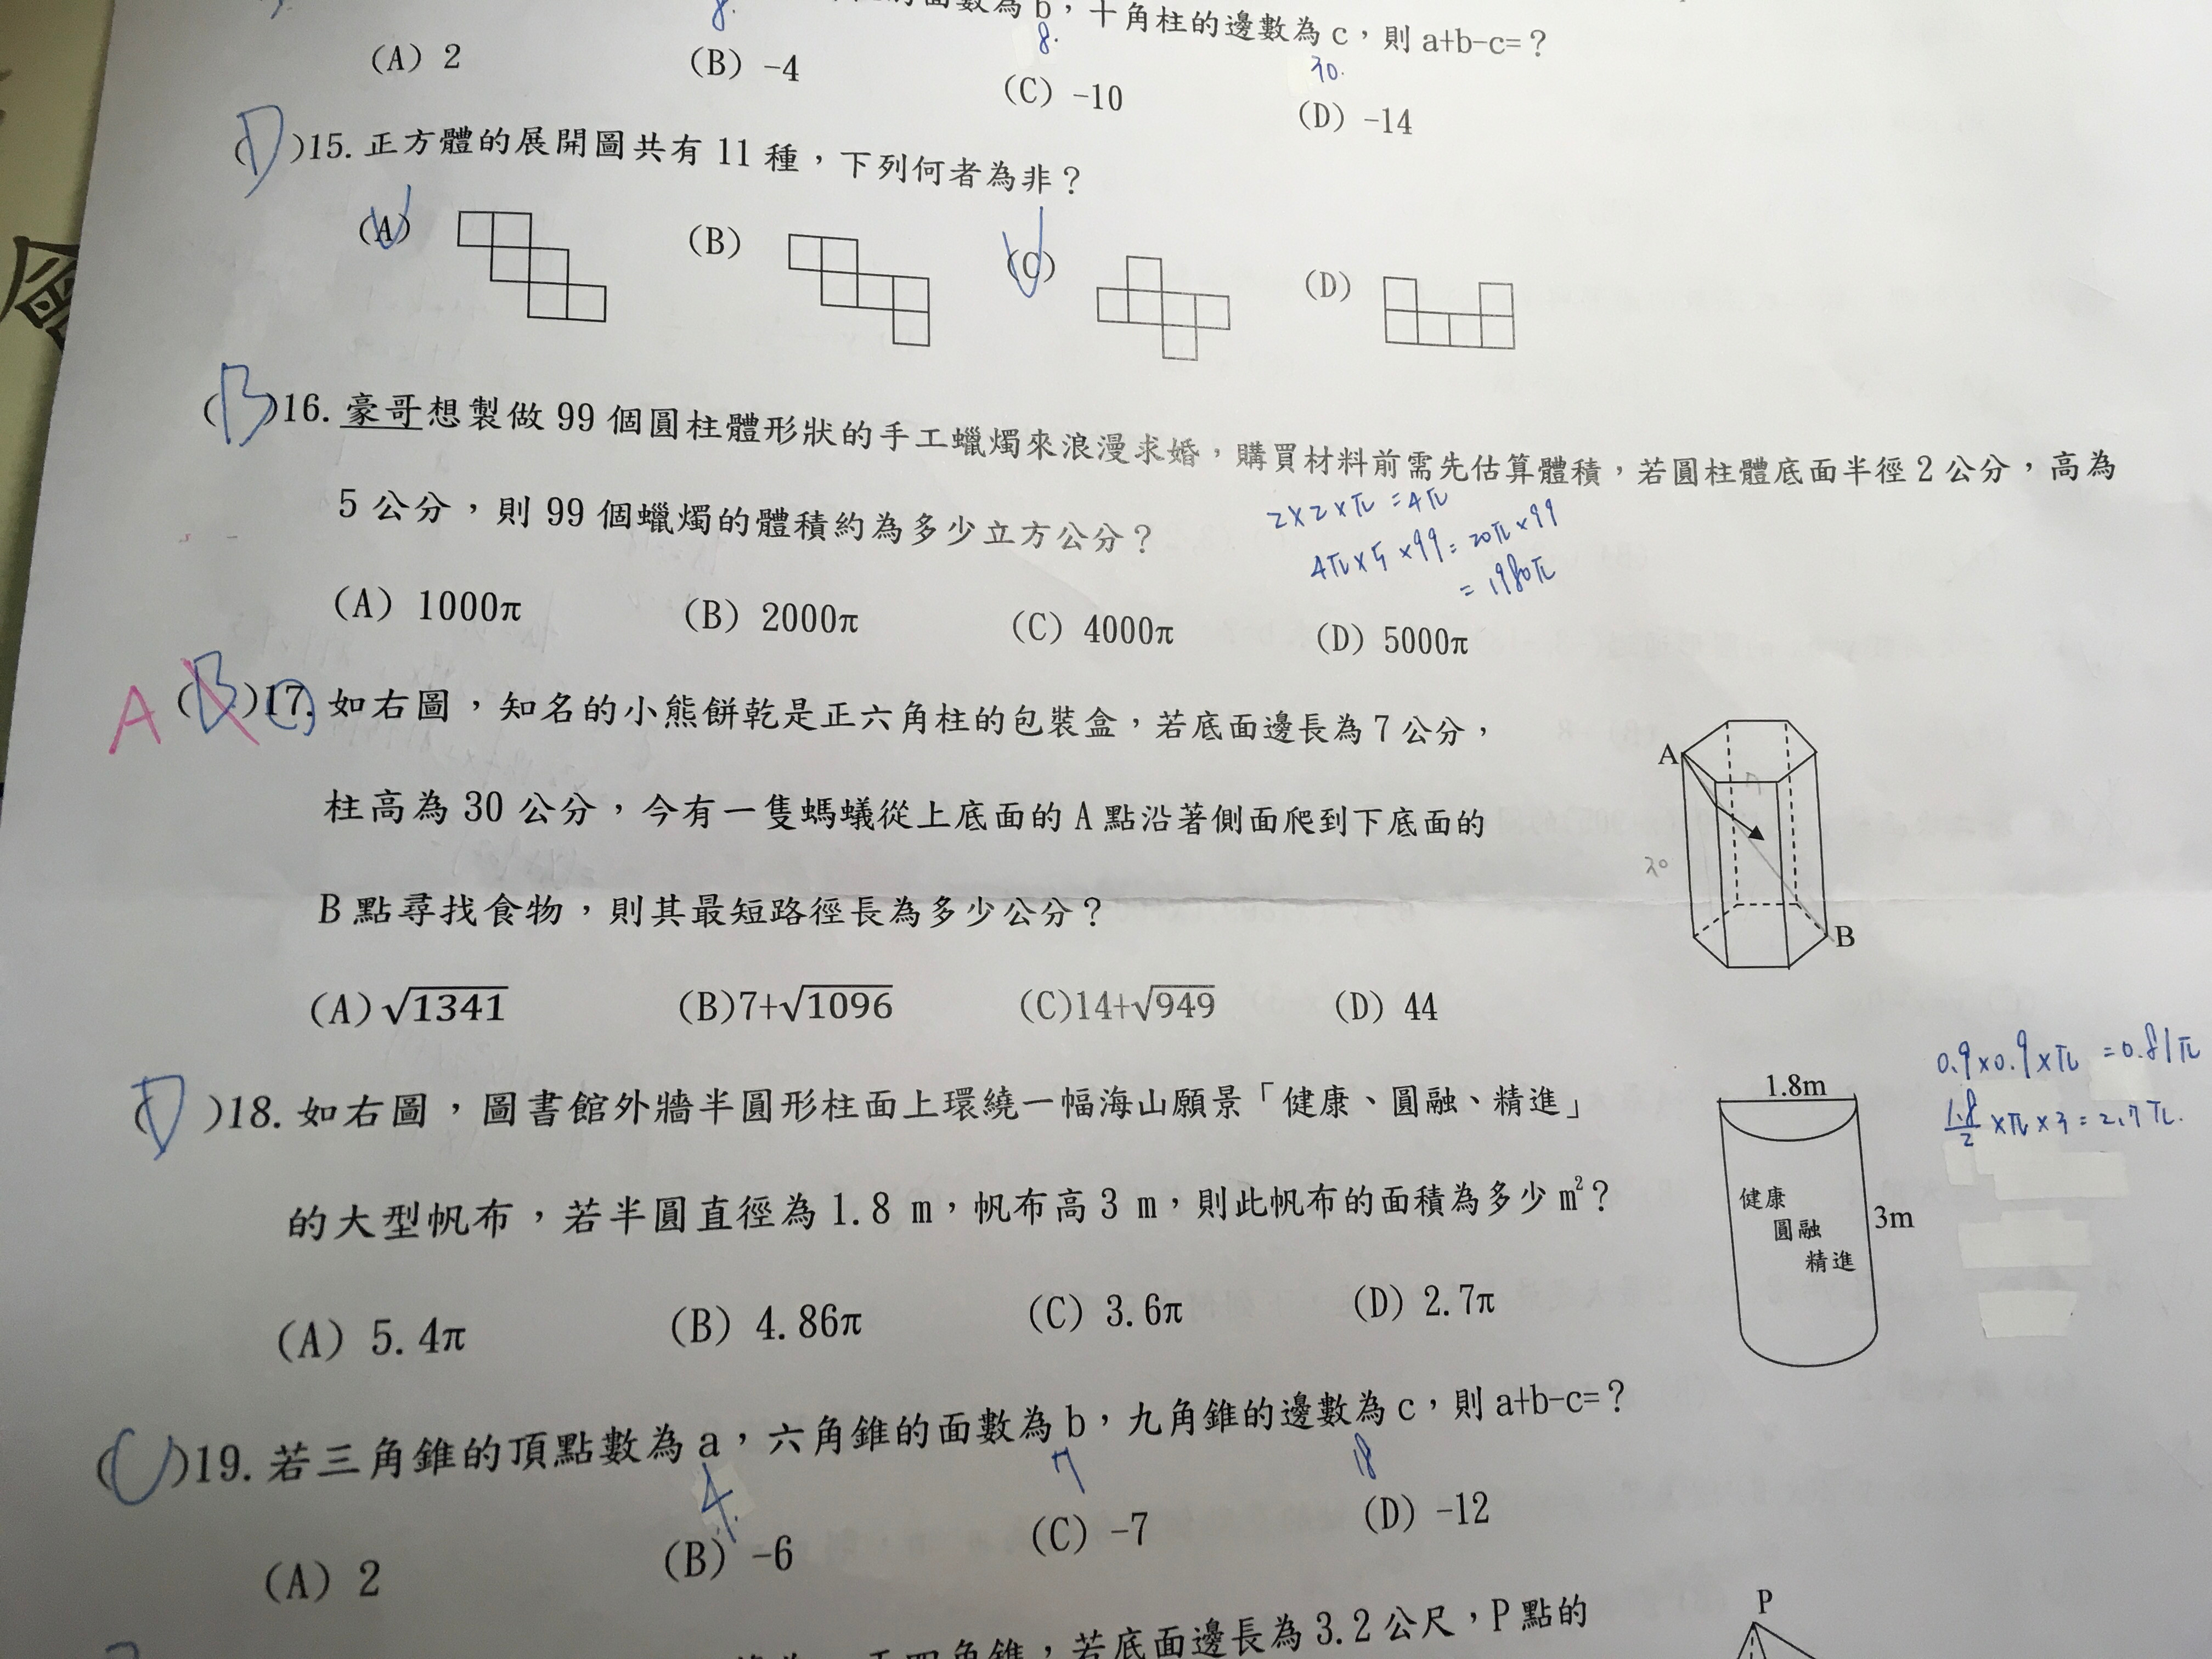 面數為b,十角柱的邊數為c,則a+b-c=?
8.
8.
30.
(A) 2 (B) -4 (C) -10 (D) -14
(D)15. 正方體的展開圖共有11種,下列何者為非?
(A) (B) (C) (D)
(B)16. 豪哥想製做99個圓柱體形狀的手工蠟燭來浪漫求婚,購買材料前需先估算體積,若圓柱體底面半徑2公分,高為
5公分,則99個蠟燭的體積約為多少立方公分?
2×2×π=4π
4π×5×99=20π×99
=1980π
(A) 1000π (B) 2000π (C) 4000π (D) 5000π
A (B)17. 如右圖,知名的小熊餅乾是正六角柱的包裝盒,若底面邊長為7公分,
柱高為30公分,今有一隻螞蟻從上底面的A點沿著側面爬到下底面的
B點尋找食物,則其最短路徑長為多少公分?
A
30
B
(A)√1341 (B)7+√1096 (C)14+√949 (D) 44
(D)18. 如右圖,圖書館外牆半圓形柱面上環繞一幅海山願景「健康、圓融、精進」
的大型帆布,若半圓直徑為1.8 m,帆布高3 m,則此帆布的面積為多少m²?
1.8m
健康
圓融
精進
3m
0.9×0.9×π=0.81π
1.8/2×π×3=2.7π.
(A) 5.4π (B) 4.86π (C) 3.6π (D) 2.7π
(C)19. 若三角錐的頂點數為a,六角錐的面數為b,九角錐的邊數為c,則a+b-c=?
4. 7 18
(A) 2 (B) -6 (C) -7 (D) -12
正四角錐,若底面邊長為3.2公尺,P點的
P